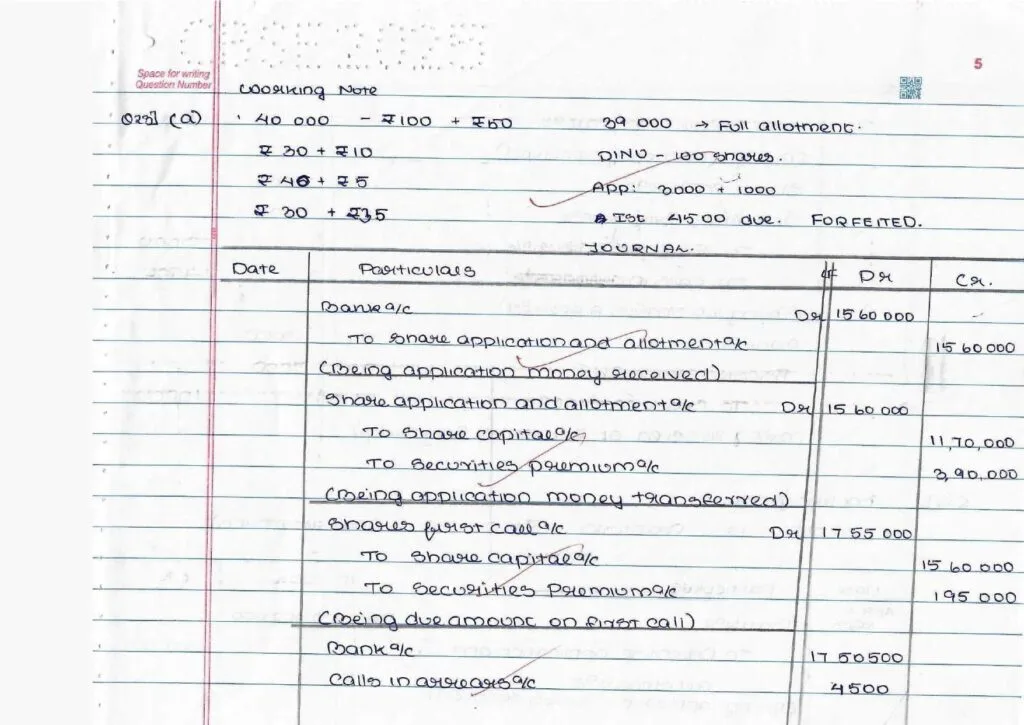 CBSE 2025
5
Space for writing
Question Number
Working Note
Q23 (a) 40 000 - ₹100 + ₹50 39 000 → Full allotment.
₹ 30 + ₹10 DINU - 100 shares.
₹ 40 + ₹5 App: 3000 + 1000
₹ 30 + ₹35 Ist 4500 due. FORFEITED.
JOURNAL.
Date Particulars lf Dr Cr.
Bank a/c Dr 15 60 000 -
To Share application and allotment a/c 15 60 000
(Being application money received)
Share application and allotment a/c Dr 15 60 000
To Share capital a/c 11,70,000
To Securities premium a/c 3,90,000
(Being application money transferred)
Shares first call a/c Dr 17 55 000
To Share capital a/c 15 60 000
To Securities Premium a/c 195 000
(Being due amount on first call)
Bank a/c 17 50500
Calls in arrears a/c 4500